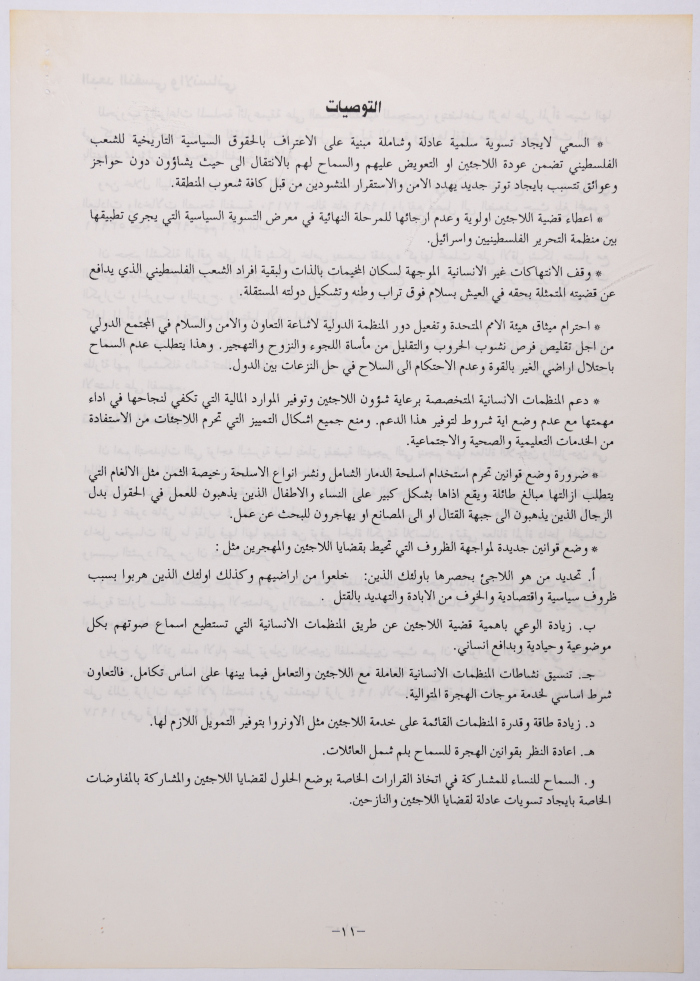 التوصيات
* السعي لايجاد تسوية سلمية عادلة وشاملة مبنية على الاعتراف بالحقوق السياسية التاريخية للشعب
الفلسطيني تضمن عودة اللاجئين او التعويض عليهم والسماح لهم بالانتقال الى حيث يشاؤون دون حواجز
وعوائق تتسبب بايجاد توتر جديد يهدد الامن والاستقرار المنشودين من قبل كافة شعوب المنطقة.
* اعطاء قضية اللاجئين اولوية وعدم ارجائها للمرحلة النهائية في معرض التسوية السياسية التي يجري تطبيقها
بين منظمة التحرير الفلسطينيين واسرائيل.
* وقف الانتهاكات غير الانسانية الموجهة لسكان المخيمات بالذات ولبقية افراد الشعب الفلسطيني الذي يدافع
عن قضيته المتمثلة بحقه في العيش بسلام فوق تراب وطنه وتشكيل دولته المستقلة.
* احترام ميثاق هيئة الامم المتحدة وتفعيل دور المنظمة الدولية لاشاعة التعاون والامن والسلام في المجتمع الدولي
من اجل تقليص فرص نشوب الحروب والتقليل من مأساة اللجوء والنزوح والتهجير. وهذا يتطلب عدم السماح
باحتلال اراضي الغير بالقوة وعدم الاحتكام الى السلاح في حل النزعات بين الدول.
* دعم المنظمات الانسانية المتخصصة برعاية شؤون اللاجئين وتوفير الموارد المالية التي تكفي لنجاحها في اداء
مهمتها مع عدم وضع اية شروط لتوفير هذا الدعم. ومنع جميع اشكال التمييز التي تحرم اللاجئات من الاستفادة
من الخدمات التعليمية والصحية والاجتماعية.
* ضرورة وضع قوانين تحرم استخدام اسلحة الدمار الشامل ونشر انواع الاسلحة رخيصة الثمن مثل الالغام التي
يتطلب ازالتها مبالغ طائلة ويقع اذاها بشكل كبير على النساء والاطفال الذين يذهبون للعمل في الحقول بدل
الرجال الذين يذهبون الى جبهة القتال او الى المصانع او يهاجرون للبحث عن عمل.
* وضع قوانين جديدة لمواجهة الظروف التي تحيط بقضايا اللاجئين والمهجرين مثل :
أ. تحديد من هو اللاجئ بحصرها باولئك الذين: خلعوا من اراضيهم وكذلك اولئك الذين هربوا بسبب
ظروف سياسية واقتصادية والخوف من الابادة والتهديد بالقتل .
ب. زيادة الوعي باهمية قضية اللاجئين عن طريق المنظمات الانسانية التي تستطيع اسماع صوتهم بكل
موضوعية وحيادية وبدافع انساني.
جـ. تنسيق نشاطات المنظمات الانسانية العاملة مع اللاجئين والتعامل فيما بينها على اساس تكامل. فالتعاون
شرط اساسي لخدمة موجات الهجرة المتوالية.
د. زيادة طاقة وقدرة المنظمات القائمة على خدمة اللاجئين مثل الاونروا بتوفير التمويل اللازم لها.
هـ. اعادة النظر بقوانين الهجرة للسماح بلم شمل العائلات.
و. السماح للنساء للمشاركة في اتخاذ القرارات الخاصة بوضع الحلول لقضايا اللاجئين والمشاركة بالمفاوضات
الخاصة بايجاد تسويات عادلة لقضايا اللاجئين والنازحين.
-١١-